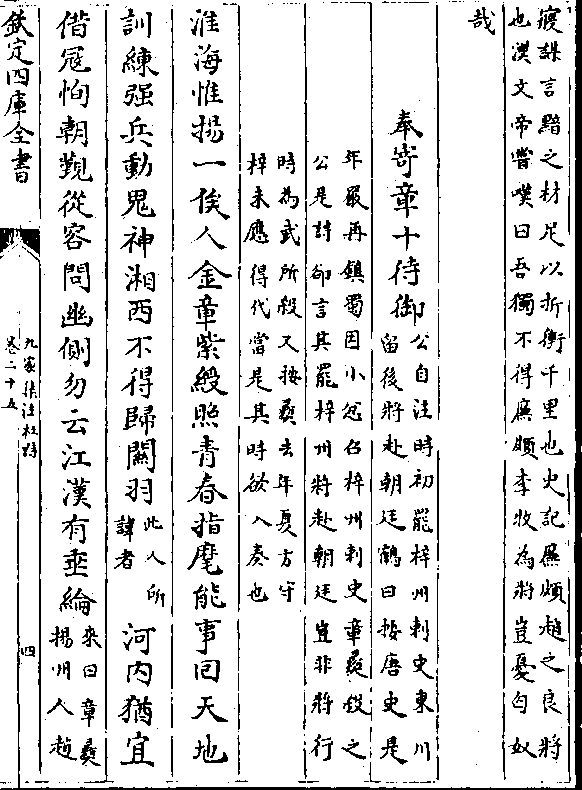 寢謀言黯之材足以折衝千里也史記廉頗趙之良將
也漢文帝嘗嘆曰吾獨不得廉頗李牧為將豈憂匈奴
哉
奉寄章十侍御
公自注時初罷梓州刺史東川
留後將赴朝廷鶴曰按唐史是
年嚴再鎮蜀因小忿召梓州刺史章彞殺之
公是詩卻言其罷梓州將赴朝廷豈非將行
時為武所殺又按彞去年夏方守
梓未應得代當是其時欲入奏也
淮海惟揚一俟人金章紫綬照青春指麾能事回天地
訓練强兵動鬼神湘西不得歸關羽
此人所
諱者
河内猶宜
借冦恂朝覲從容問幽側勿云江漢有垂綸
來曰章彞
揚州人趙
欽定四庫全書
九家集注杜詩
卷二十五
四